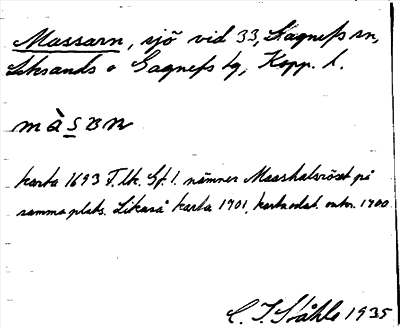 Massarn, sjö vid 33, Gagnefs sn,
Leksands o Gagnefs tg, Kopp. l.
mà s ʙn
karta 1693 T. lk. Gf. 1. nämner Maashalsröset på
samma plats. Likaså karta 1701, kartaodat. omkr. 1700
C. I. Ståhle 1935